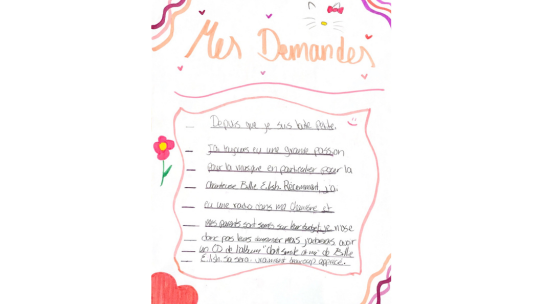 Mes Demandes
Depuis que je suis toute petite.
J'ai toujours eu une grande passion
pour la musique en particulier pour la
chanteuse Billie Eilish. Récemment, j'ai
eu une radio dans ma chambre et
mes parents sont serrés sur leur budget, je n'ose
donc pas leurs demander mais j'adorerais avoir
un CD de l'album "dont smile at me" de Billie
Eilish sa sera vraiment beaucoup apprécié.